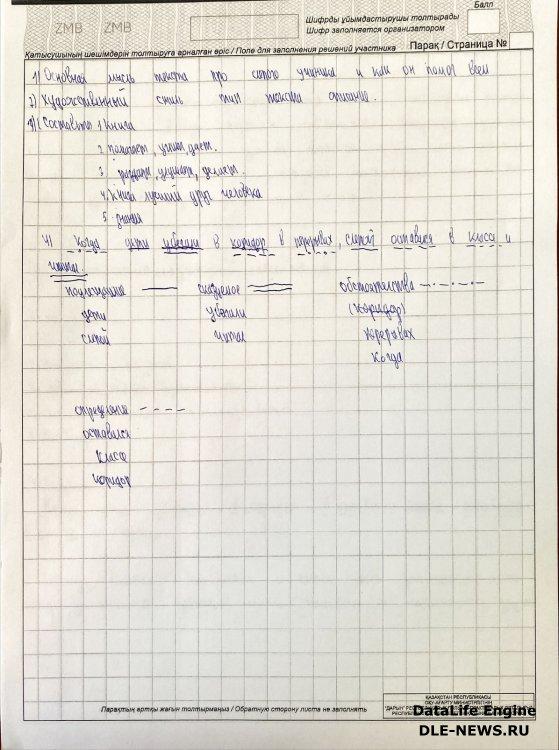 ZMB ZMB
Балл
Шифрды ұйымдастырушы толтырады
Шифр заполняется организатором
Қатысушының шешімдерін толтыруға арналған өріс / Поле для заполнения решений участника Парақ / Страница №
1) Основная мысль текста про слепого ученика и как он помог всем
2) Художественный стиль тип текста описание.
3) Составить 1. Книга
2. помогает, учит, дает.
3. раздать, слушать, делает.
4. Книга лучший друг человека
5. знания
4) Когда дети убегали в коридор в перерывах, слепой оставался в классе и
читал.
подлежащие сказуемое обстоятельства
дети убегали (коридор)
слепой читал перерывах
когда
определение
оставался
классе
коридор
Парақтың артқы жағын толтырмаңыз / Обратную сторону листа не заполнять
ҚАЗАҚСТАН РЕСПУБЛИКАСЫ
ОҚУ-АҒАРТУ МИНИСТРЛІГІНІҢ
DataLife Engine
DLE-NEWS.RU